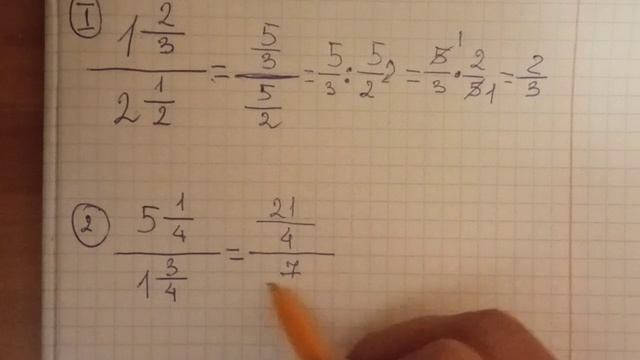 ① 1 2/3 / 2 1/2 = 5/3 / 5/2 = 5/3 : 5/2 2 = 5/3 1 · 2/5 1 = 2/3
② 5 1/4 / 1 3/4 = 21/4 / 7